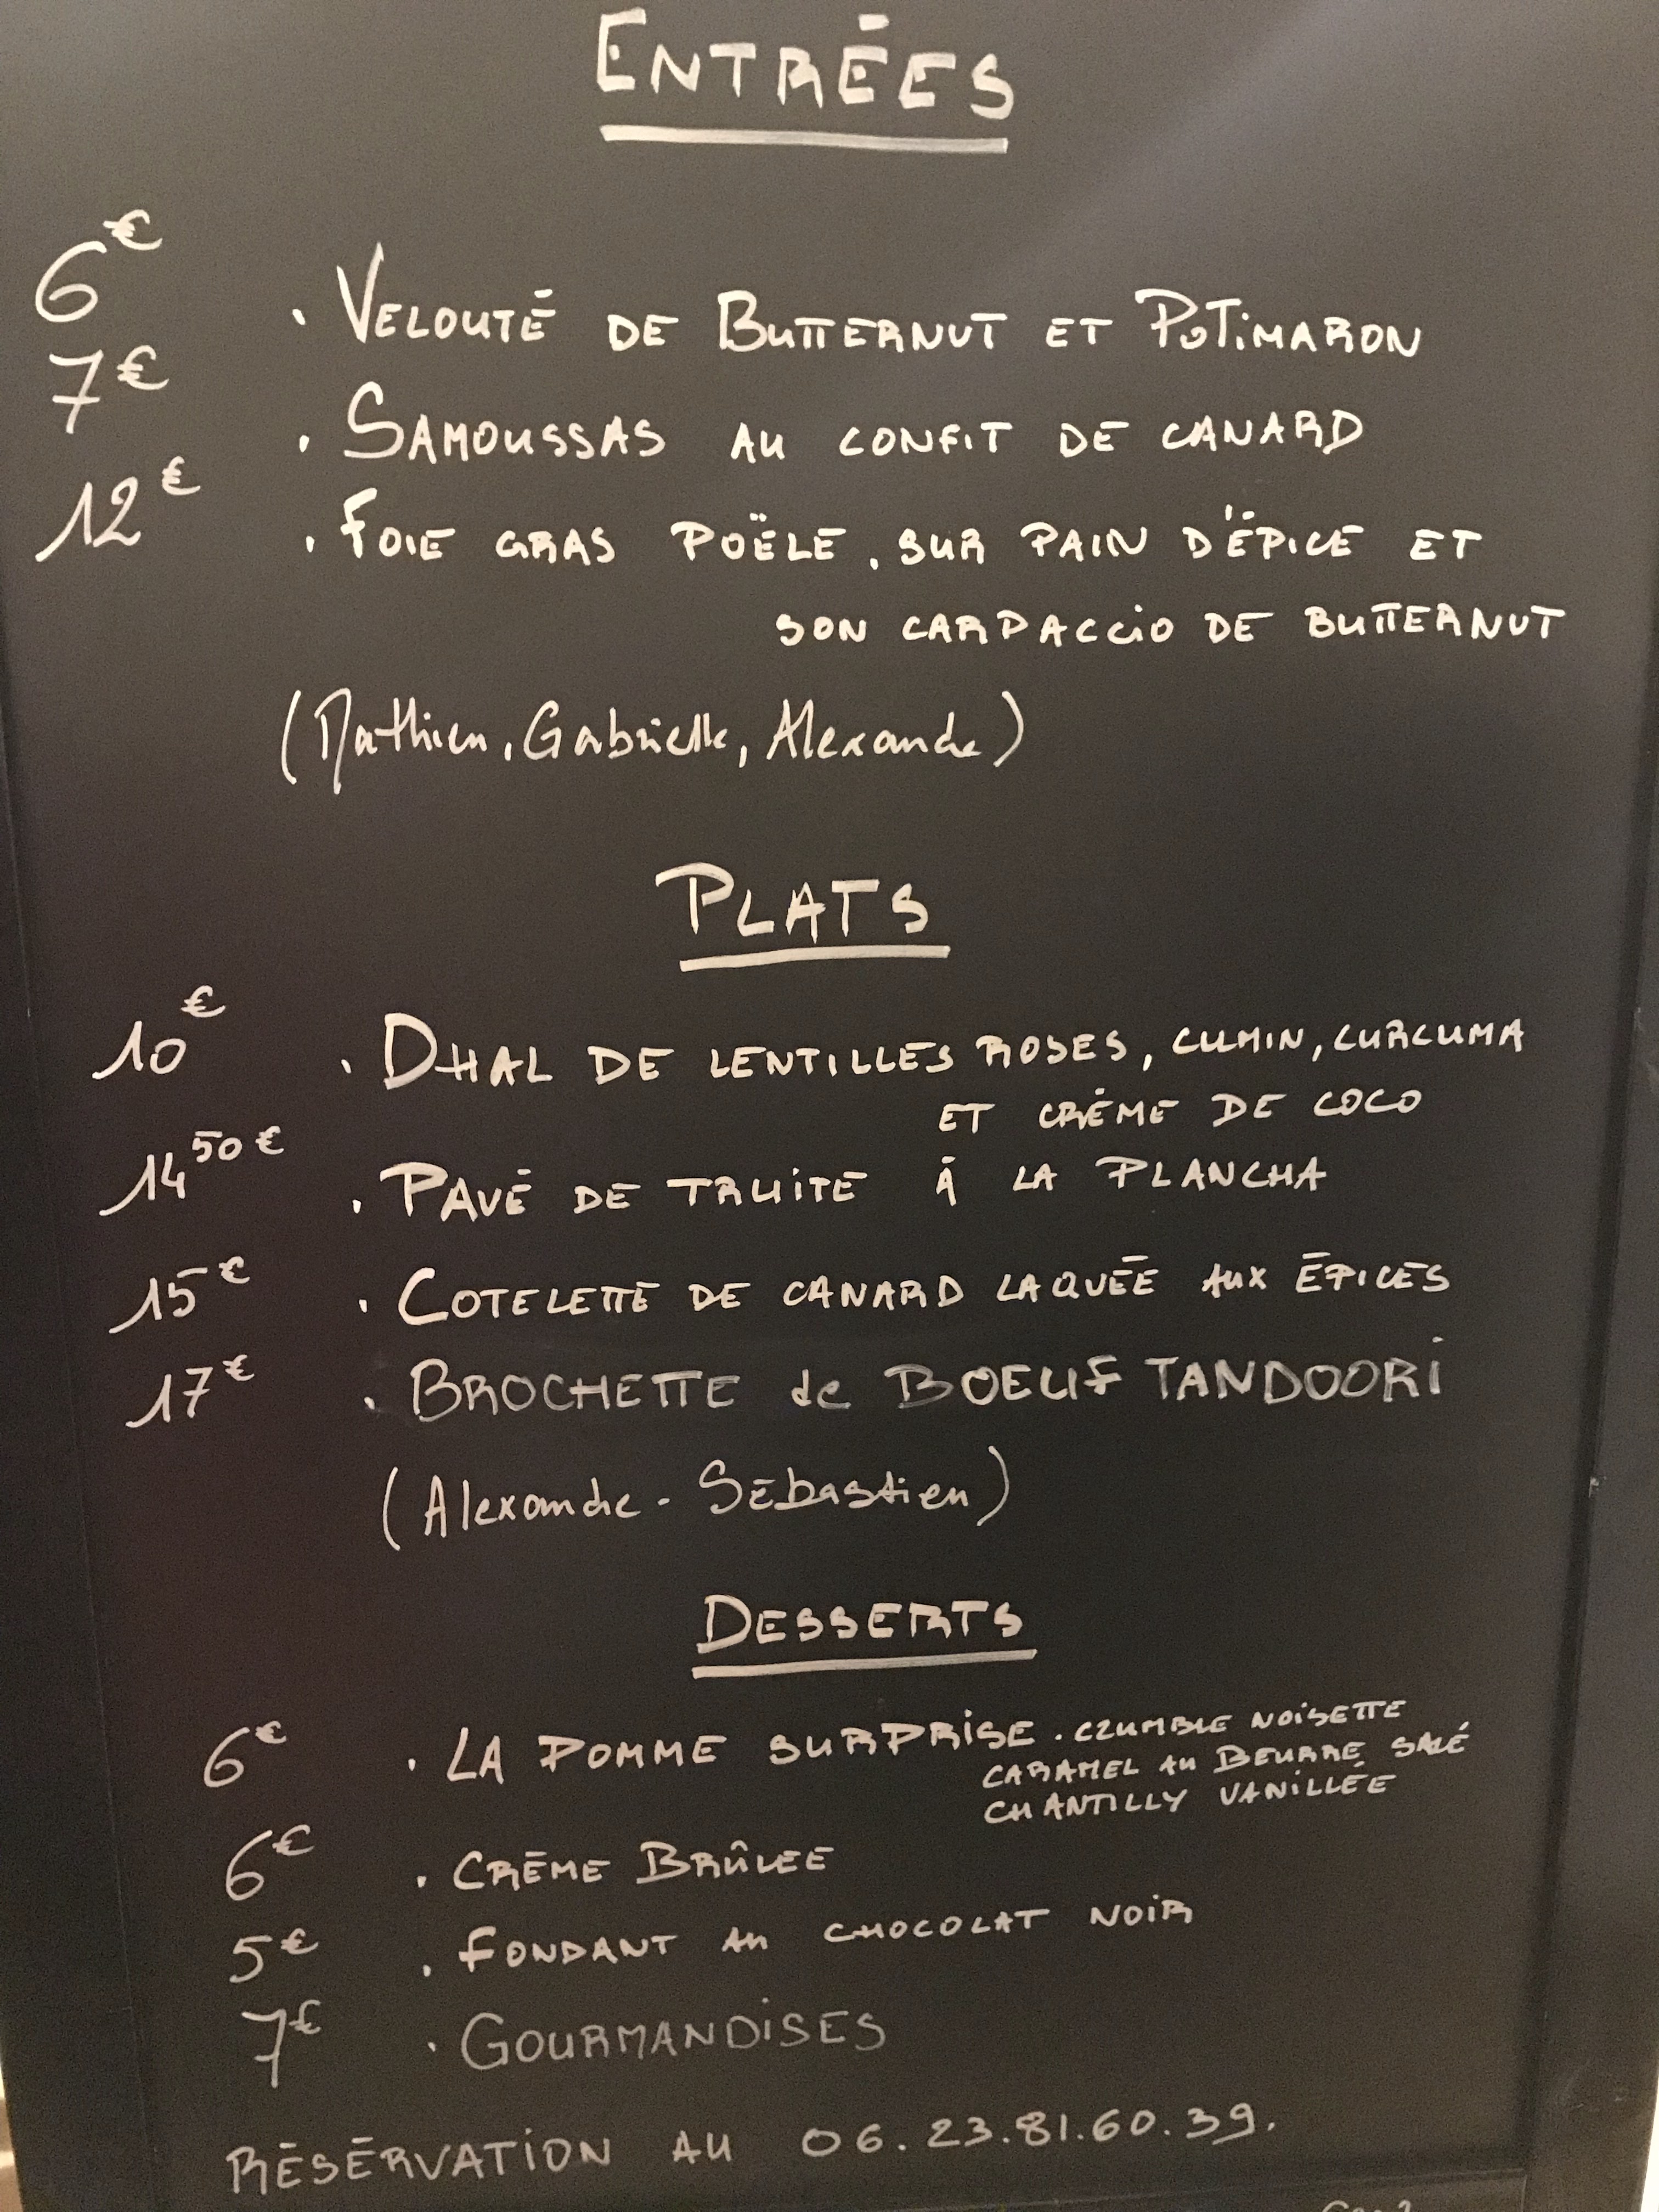 ENTRÉES
6€ . VELOUTÉ DE BUTTERNUT ET POTIMARON
7€ . SAMOUSSAS AU CONFIT DE CANARD
12€ . FOIE GRAS POËLE, SUR PAIN D'ÉPICE ET
SON CARPACCIO DE BUTTERNUT
(Mathieu, Gabrielle, Alexandre)
PLATS
10€ . DHAL DE LENTILLES ROSES, CUMIN, CURCUMA
ET CRÈME DE COCO
14 50€ . PAVÉ DE TRUITE À LA PLANCHA
15€ . COTELETTE DE CANARD LAQUÉE AUX ÉPICES
17€ . BROCHETTE de BOEUF TANDOORI
(Alexandre - Sébastien)
DESSERTS
6€ . LA POMME SURPRISE . CRUMBLE NOISETTE
CARAMEL AU BEURRE SALÉ
CHANTILLY VANILLÉE
6€ . CRÈME BRÛLEE
5€ . FONDANT AU CHOCOLAT NOIR
7€ . GOURMANDISES
RÉSÉRVATION AU 06.23.81.60.39.